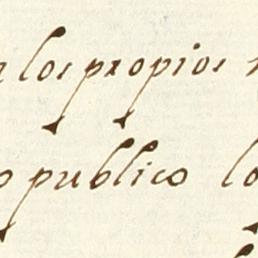 los propios
publico lo